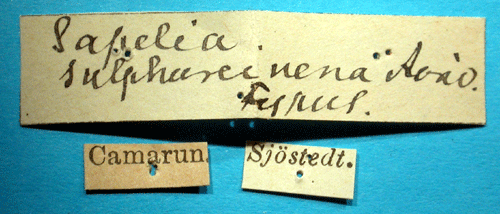 Sapelia
sulphureivena Auriv.
Typus.
Camarun.
Sjöstedt.